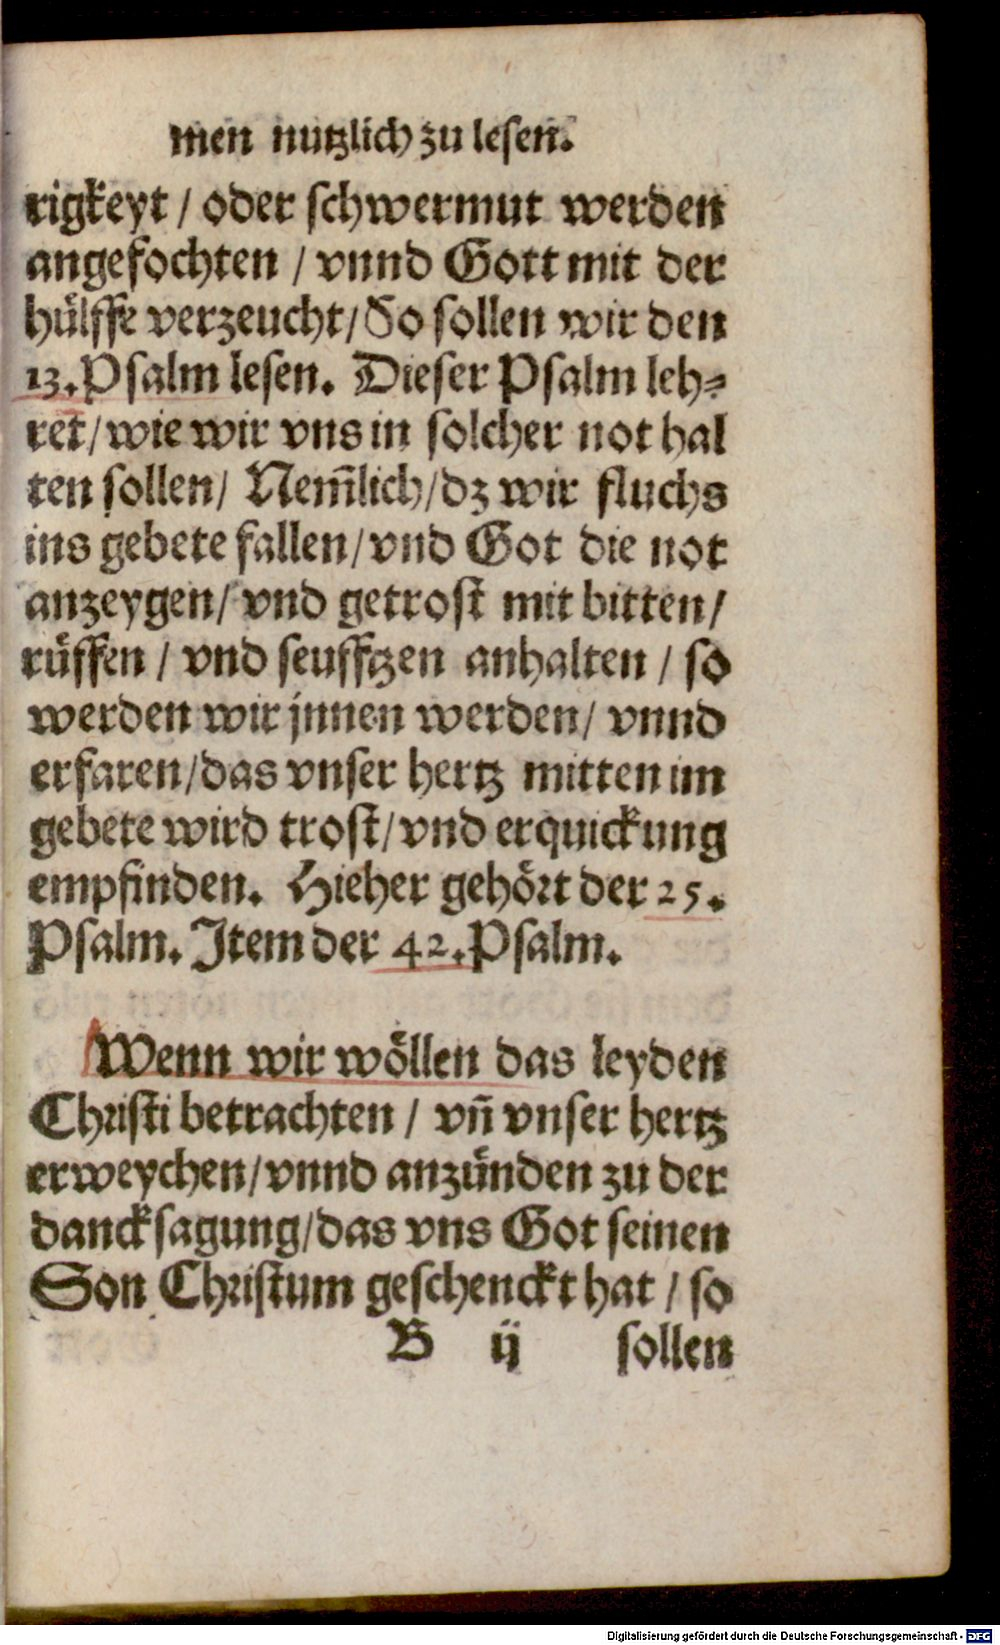 men nutzlich zu lesen.
rigkeyt / oder schwermut werden
angefochten / vnnd Gott mit der
hülffe verzeucht / So sollen wir den
13. Psalm lesen. Dieser Psalm leh⸗
ret / wie wir vns in solcher not hal
ten sollen / Nem̃lich / dz wir fluchs
ins gebete fallen / vnd Got die not
anzeygen / vnd getrost mit bitten /
rüffen / vnd seufftzen anhalten / so
werden wir jnnen werden / vnnd
erfaren / das vnser hertz mitten im
gebete wird trost / vnd erquickung
empfinden. Hieher gehört der 25.
Psalm. Item der 42. Psalm.
Wenn wir wöllen das leyden
Christi betrachten / vñ vnser hertz
erweychen / vnnd anzünden zu der
dancksagung / das vns Got seinen
Son Christum geschenckt hat / so
B ij sollen
Digitalisierung gefördert durch die Deutsche Forschungsgemeinschaft - DFG